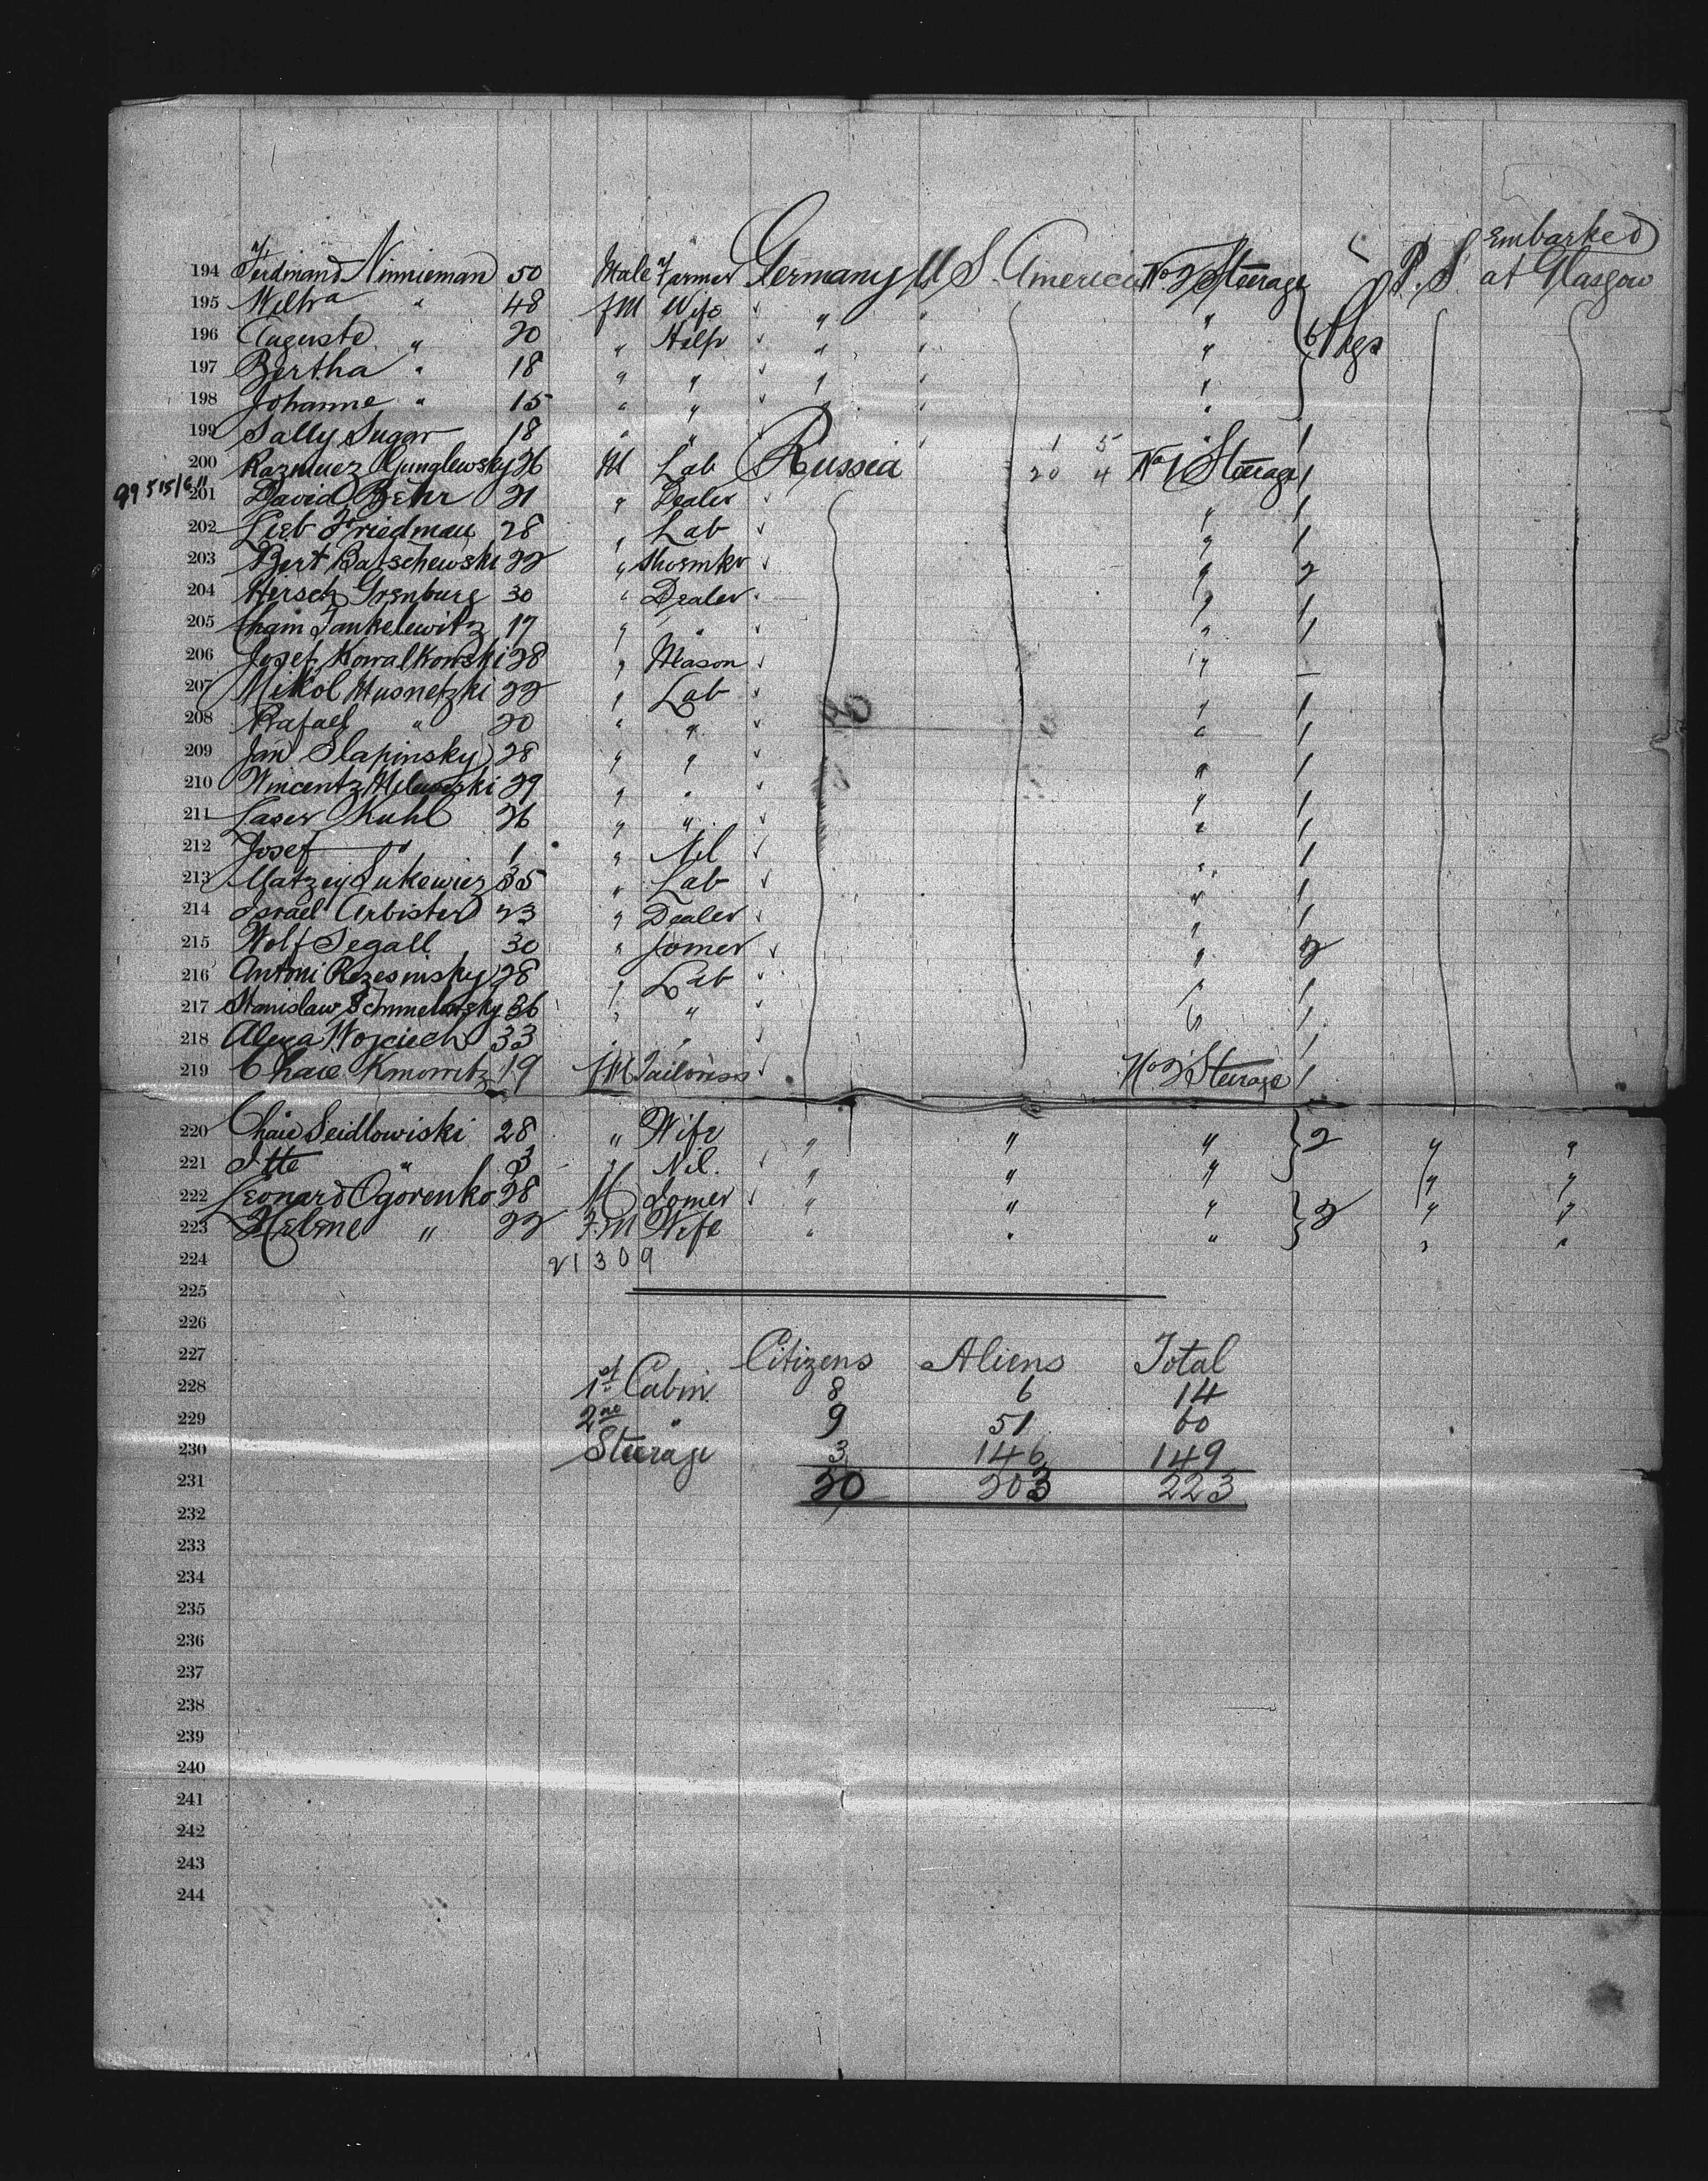 Embarked
194 Ferdinand Ninnieman 50 Male Farmer Germany U S America No 2 Steerage P. S. at Glasgow
195 " 48 fM Wife " " " "
196 Auguste " 20 " Help " " " 6 Pkgs
197 Bertha " 18 " " " " "
198 Johanne " 15 " " " " "
199 Sally Sugar 18 " " " " 1 5 " 1
200 26 M Lab Russia 20 4 No 1 Steerage 1
99515/6 11
201 David Behr 21 " Dealer " 1
202 Lieb Friedman 28 " Lab " 1
203 Bert Batschewski 22 " Shoemkr " 2
204 Hersch Grenburg 30 " Dealer " 1
205 Chaim Jankelewitz 17 " " " 1
206 Josef Kowalkowski 28 " Mason "
207 Mikol Husnetzki 22 " Lab " 1
208 Rafael " 20 " " " 1
209 Jan Slapinsky 28 " " " 1
210 Wincentz 29 " " " 1
211 Laser Kuhl 26 " " " 1
212 Josef " 1 " Nil " 1
213 Matzey Lukewicz 35 " Lab " 1
214 Israel Arbister 23 " Dealer " 1
215 Wolf Segall 30 " Jomer " 2
216 Antoni 28 " Lab " 1
217 Stanislaw 26 " " " 1
218 Wojciech 33 " " 1
219 Chaie 19 fM Tailoress No 2 Steerage 1
220 Chaie Seidlowiski 28 " Wife " " " 2 " "
221 Itte " 3 " Nil. " " " " "
222 Leonard Ogorenko 28 M Jomer " " " 2 " "
223 Helene " 22 F.M Wife " " " " "
224 21 3 0 9
225
226
227 Citizens Aliens Total
228 1st Cabin 8 6 14
229 2nd " 9 51 60
230 Steerage 3 146 149
231 20 203 223
232
233
234
235
236
237
238
239
240
241
242
243
244